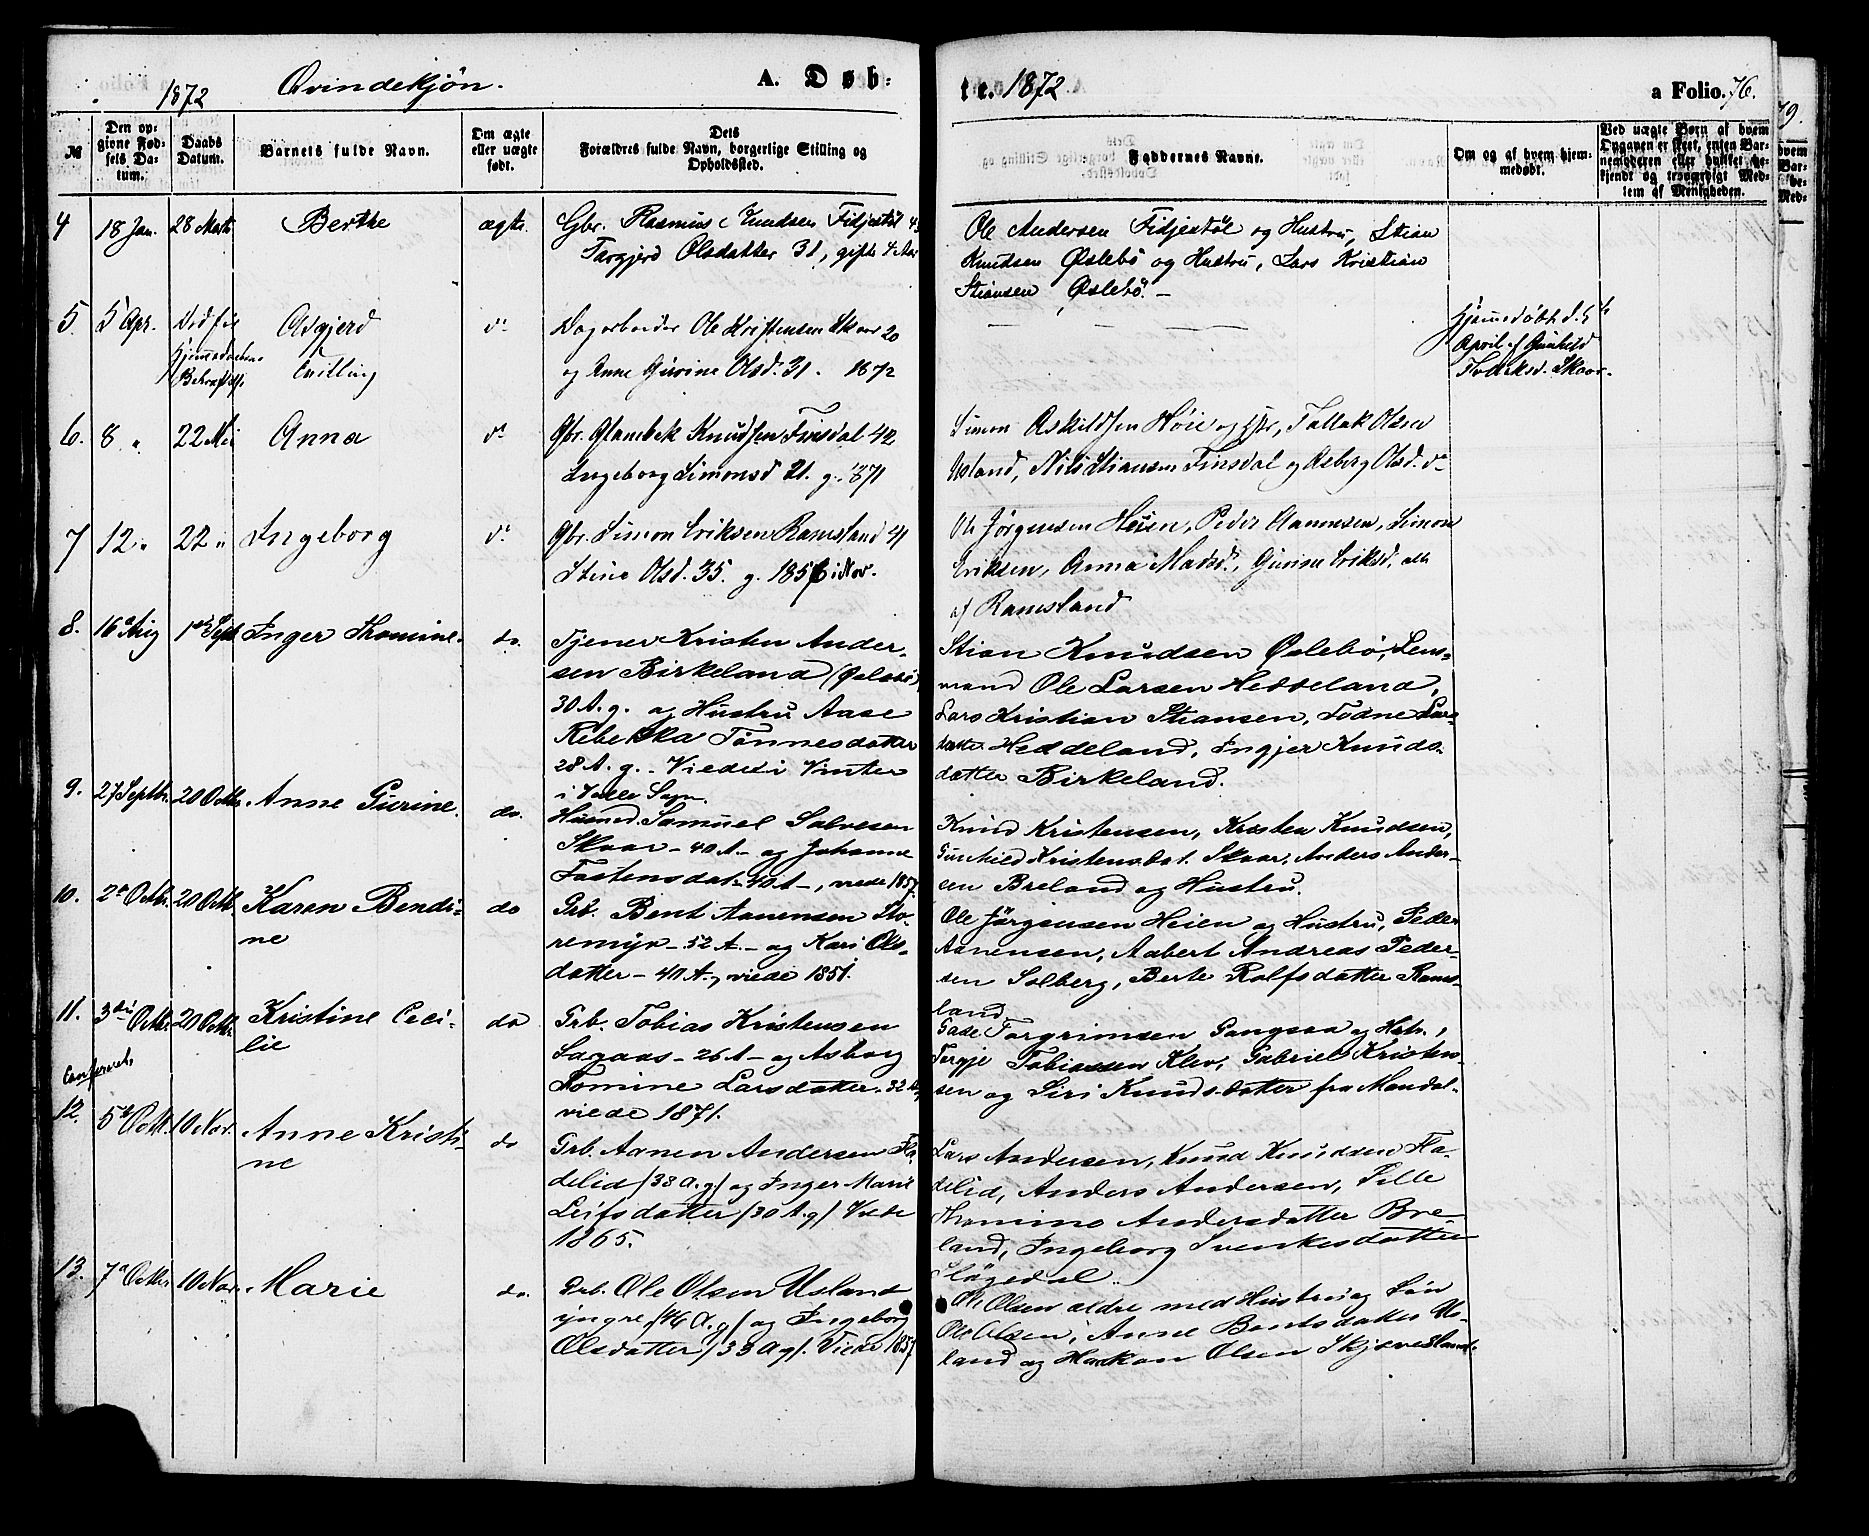 1872 Qvindekjøn. A. Døb-
te. 1872 a Folio. 76.
№
Den opgivne Fødsels Datum.
Daabs Datum.
Barnets fulde Navn.
Om ægte eller uægte født.
Dets Forældres fulde Navn, borgerlige Stilling og Opholdssted.
Faddernes Navne.
Om og af hvem hjemmedøbt.
Ved uægte Børn af hvem Opgaven er skeet, enten Barnemoderen eller hvilket bekjendt og troværdigt Medlem af Menigheden.
4 18 Jan. 28 Marts Berthe ægte.
Gbr. Rasmus Knudsen Fidjestøl
Targjerd Olsdatter 31, gifte 4 Aar
Ole Andersen Fidjestøl og Hustru, Stian
Knudsen Øslebø og Hustru, Lars Kristian
Stiansen Øslebø. —
5. 5 Apr. Asgjerd
Tvilling
do
Dagarbeider Ole Kristensen Skaar 20
og Anne Gurine Olsd. 31. 1872
Hjemmedøbt d. 5te
April af Gunhild
Skaar.
6. 8 " 22 Mai Anna do
Gbr. Knudsen Finsdal 42
Ingeborg Simonsd 21. g. 1871
Simon Askildsen Høie og Hstr, Tallak Olsen
Usland, Nils Stiansen Finsdal og Asberg Olsd. do
7 12 " 22 " Ingeborg do
Gbr. Simon Eriksen Ramsland 41
Stine Olsd. 35. g. 1856 i Nov.
Ole Jørgensen Heien, Peder Aanensen, Simon
Eriksen, Anna Madsd., Gurine Eriksd, alle
af Ramsland
8. 16 Aug 1ste Sept Inger Thomine. do.
Tjener Kristen Ander-
sen Birkeland (Øslebø)
30 A. g. og Hustru Aase
Rebekka Tønnesdatter
28 A. g. Viede i Vinter
i Valle Sogn.
Stian Knudsen Øslebø, Lens-
mand Ole Larsen Heddeland,
Lars Kristian Stiansen, Todne Lars-
datter Heddeland, Ingjer Knuds-
datter Birkeland.
9. 27 Septbr. 20 Octbr. Anne Gurine. do.
Husmd. Samuel Salvesen
Skaar — 40 A — og Johanne
Tostensdat. 40 A —, viede 1857.
Knud Kristensen, Kristen Knudsen,
Gunhild Kristensdat. Skaar, Anders Ander-
sen Breland og Hustru.
10. 2 Octbr. 20 Octb Karen Bendi-
ne
do
Grb. Bent Aanensen Sto-
remyr — 52 A. — og Kari Ols-
datter — 40 A., viede 1851.
Ole Jørgensen Heien og Hustru, Peder
Aanensen, Aabert Andreas Peder-
sen Solberg, Berte Rolfsdatter Rams-
land
11. 3die Octbr 20 Octbr. Kristine Ceci-
lie
do
Grb. Tobias Kristensen
Lagaas — 26 A — og Asborg
Tomine Larsdatter. 32 A,
viede 1871.
Torgrimsen Gangsaa og Hstr.,
Tergje Tobiassen Klev, Gabriel Kristen-
sen og Siri Knudsdatter fra Mandal.
Confereret
12. 5te Octb. 10 Nov. Anne Kristi-
ne
do
Grb. Aanen Andersen Fla-
delid (38 A. g) og Inger Marie
Leifsdatter (30 A. g) Viede
1865.
Lars Andersen, Knud Knudsen Fla-
delid, Anders Andersen, Sille
Thomine Andersdatter Bre-
land, Ingeborg Svenkesdatter
Løgedal.
13. 7 Octbr. 10 Nov. Marie do.
Grb. Ole Olsen Usland
yngre, (46 A. g) og Ingeborg
Olsdatter (33 A g). Viede 1857
Ole Olsen ældre med Hustru og Søn
Ole Olsen, Anne Bentsdatter Us-
land og Haakon Olsen Skjævesland.